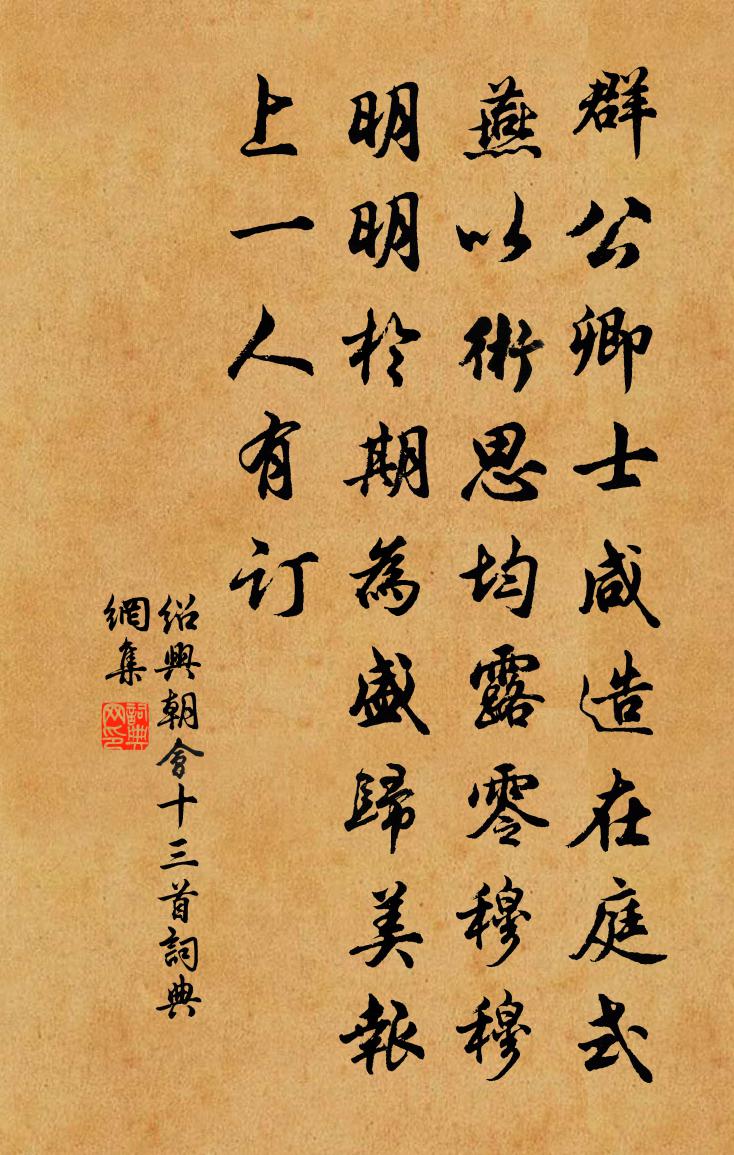 群公卿士咸造在庭式
燕以術思均露零穆穆
明明於期為盛歸美報
上一人有訂
绍興朝會十三首詞典
網集
詞典
网印